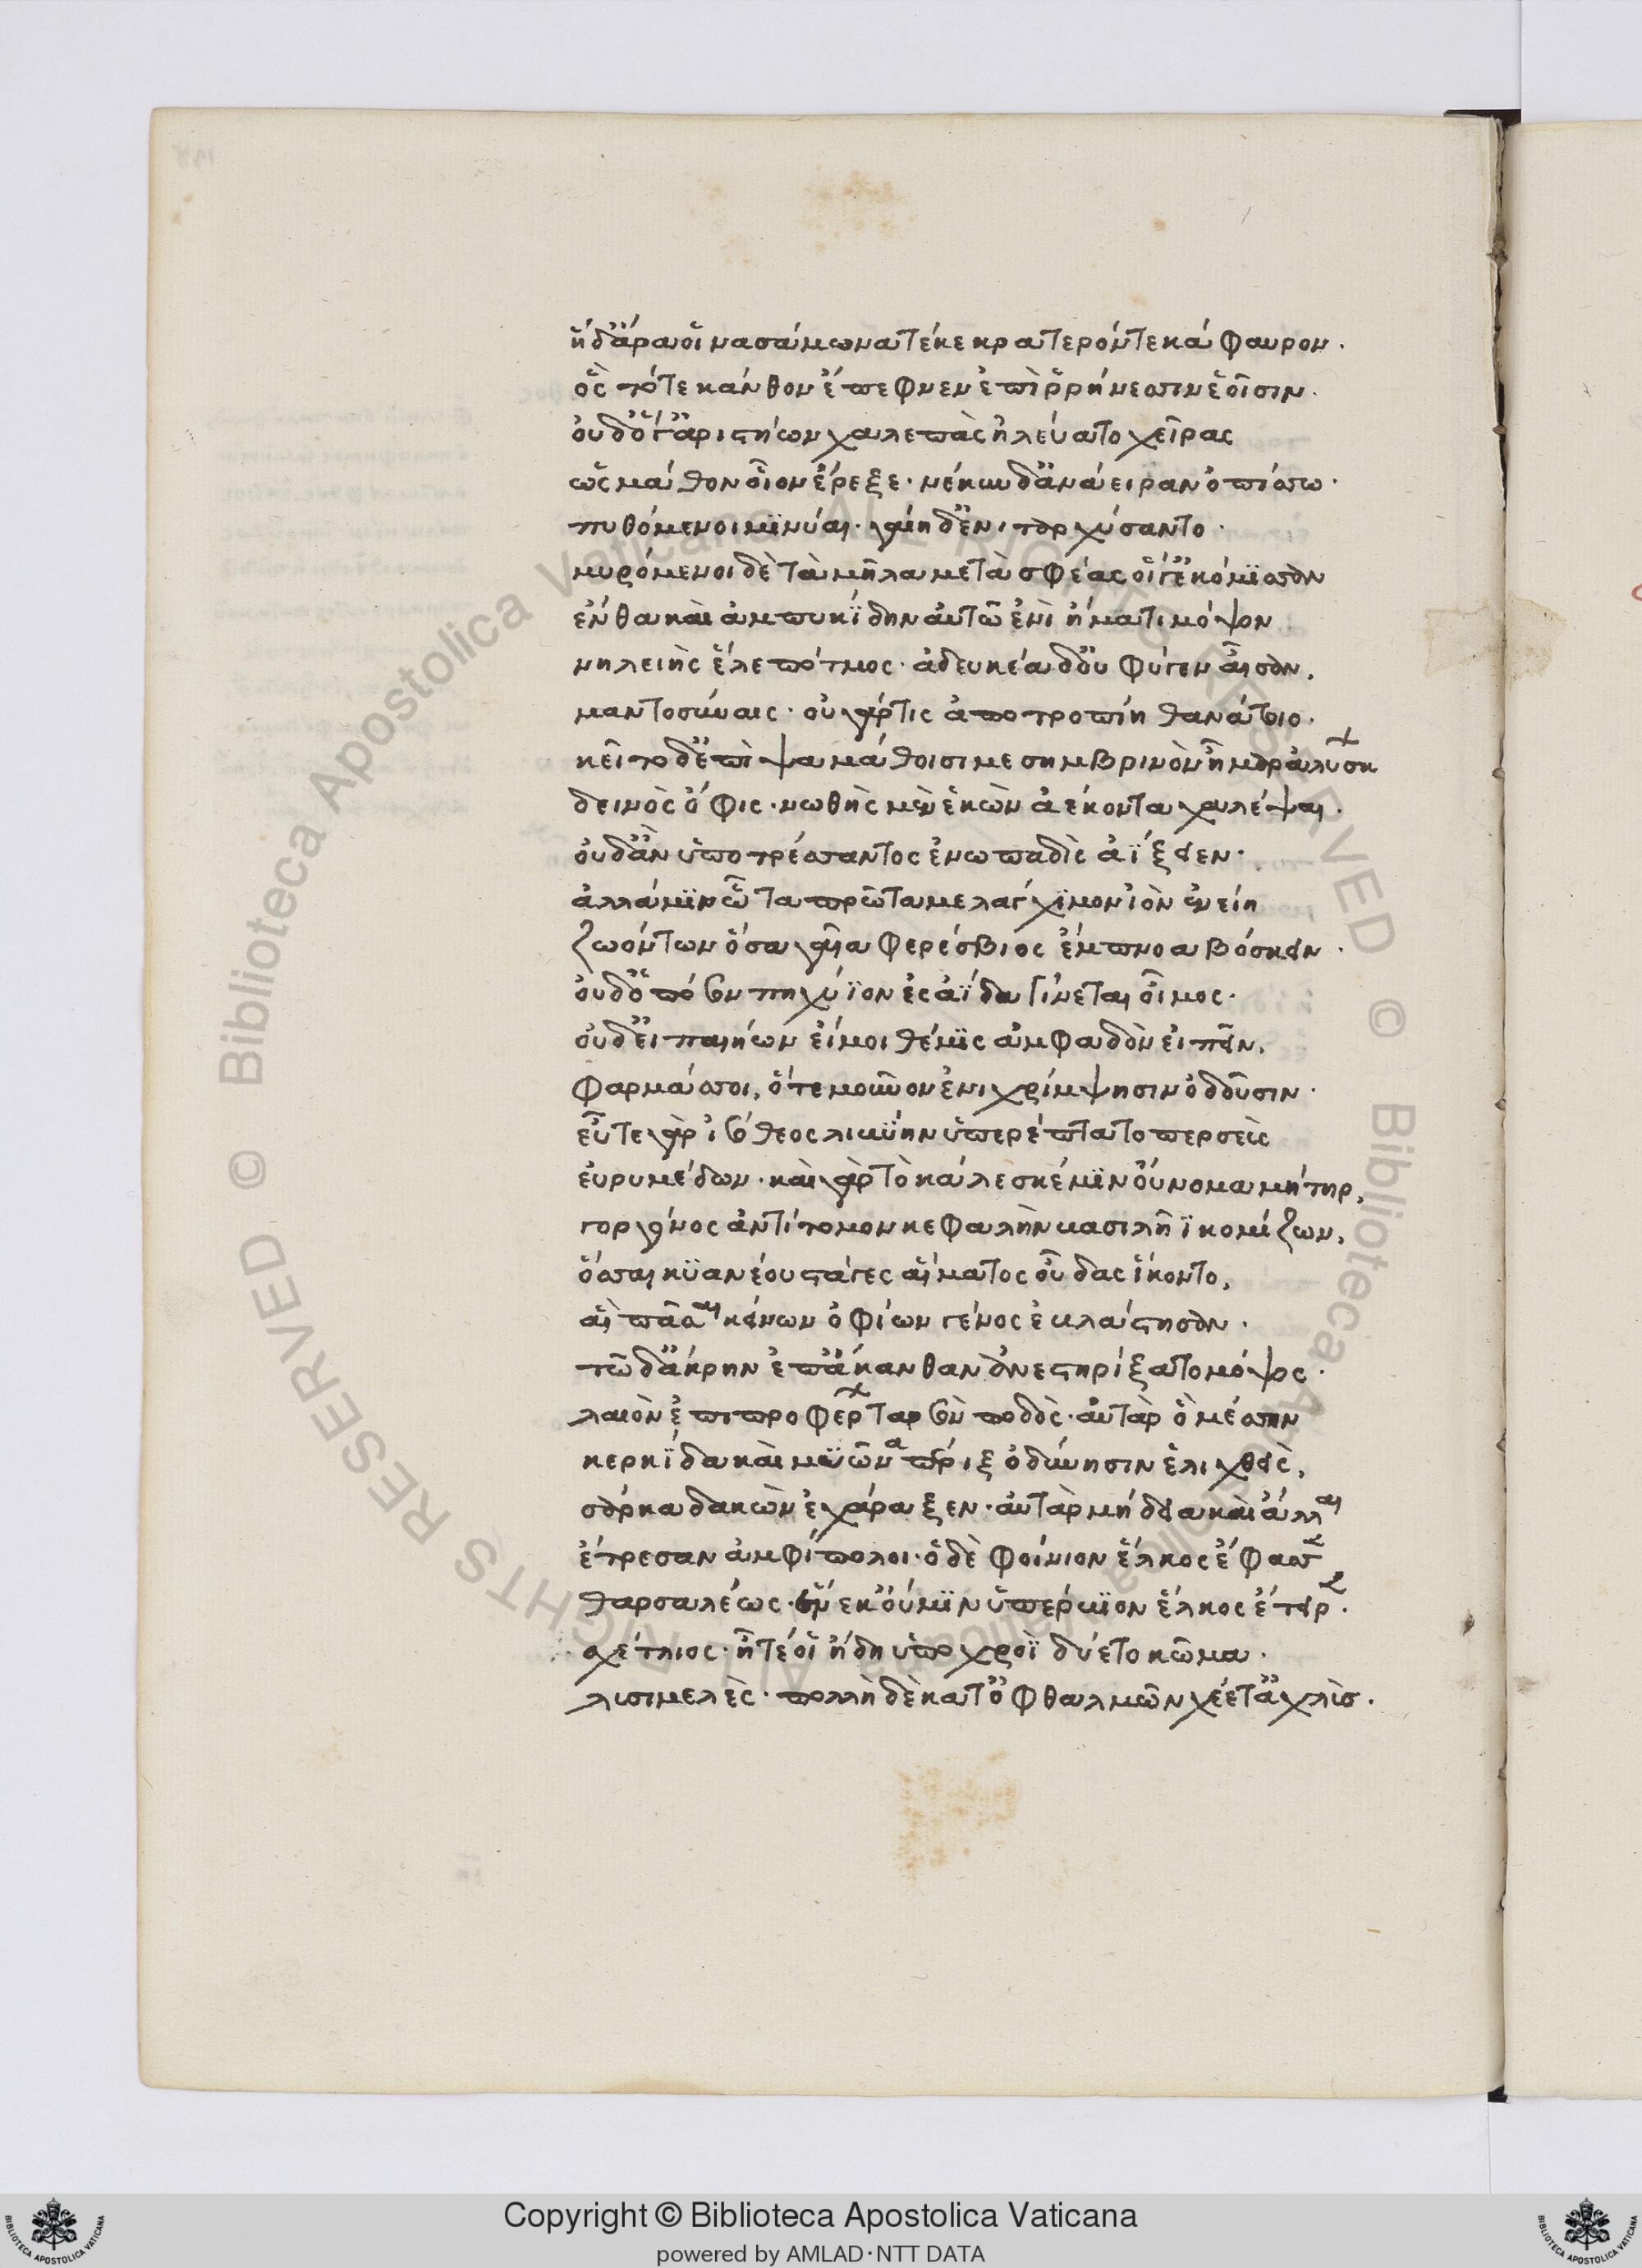 ἡ δ' ἄρα οἷ νασάμωνα τέκε κρατερόν τε κάφαυρον.
ὃς τότε κάνθον ἔπεφνεν ἐπὶ ῥρήνεσσιν ἑοῖσιν.
οὐδ' ὅγ' ἀριστήων χαλεπὰς ἠλεύατο χεῖρας
ὡς μάθον οἷον ἔρεξε. νέκυν δ' ἀνάειραν ὀπίσσω.
πυθόμενοι μινύαι. γαίη δ' ἐνὶ ταρχύσαντο.
μυρόμενοι δὲ τὰ μῆλα μετὰ σφέας οἵγ' ἐκόμισσαν
ἔνθα καὶ ἀμπυκίδην αὐτῶ ἐνὶ ἤματι μόψον
νηλειὴς ἕλε πότμος. ἀδευκέα δ' οὐ φύγεν αἶσαν,
μαντοσύναις. οὐ γάρ τις ἀποτροπίη θανάτοιο.
κεῖτο δ' ἐπὶ ψαμάθοισι μεσημβρινὸν ἦμαρ ἀλύσκων
δεινὸς ὄφις. νωθὴς μὲν ἑκὼν ἀέκοντα χαλέψαι.
οὐδ' ἂν ὑποτρέσσαντος ἐνωπαδὶς ἀΐξειεν.
ἀλλὰ μὲν ᾧ τὰ πρῶτα μελάγχιμον ἰὸν ἐνείη
ζωόντων ὅσα γαῖα φερέσβιος ἔμπνοα βόσκειν.
οὐδ' ὁπόσον πηχύϊον ἐς ἀΐδα γίνεται οἶμος.
οὐδ' εἰ παιήων εἴ μοι θέμις ἀμφαδὸν εἰπεῖν,
φαρμάσσοι, ὅτε μοῦνον ἐνιχρίμψησιν ὀδοῦσιν.
εὖτε γὰρ ἰσόθεος λιβύην ὑπερέπτατο περσεὺς
εὐρυμέδων. καὶ γὰρ τὸ κάλεσκέ μιν οὔνομα μήτηρ,
γοργόνος ἀρτίτομον κεφαλὴν βασιλῆϊ κομίζων,
ὅσσαι κυανέου στάγες αἵματος οὖδας ἵκοντο,
αἱ πᾶσαι κείνων ὀφίων γένος ἐβλάστησαν.
τῶ δ' ἄκρην ἐπ' ἄκανθαν ἐνεστηρίξατο μόψος.
λαιὸν ἐπιπροφέρων ταρσὸν ποδός. αὐτὰρ ὁ μέσσην
κερκίδα καὶ μυῶνα πέριξ ὀδύνησιν ἑλιχθεὶς,
σάρκα δακὼν ἐχάραξεν. αὐτὰρ μήδεια καὶ ἄλλαι
ἔτρεσαν ἀμφίπολοι. ὁ δὲ φοίνιον ἕλκος ἔφασσεν
θαρσαλέως. ἕνεκ' οὔ μιν ὑπέρβιον ἕλκος ἔτειρεν.
σχέτλιος. ἦ τέ οἱ ἤδη ὑπὸ χροῒ δύετο κῶμα.
λυσιμελὲς. πολλὴ δὲ κατ' ὀφθαλμῶν χέετ' ἀχλὺς.
Copyright © Biblioteca Apostolica Vaticana
powered by AMLAD·NTT DATA